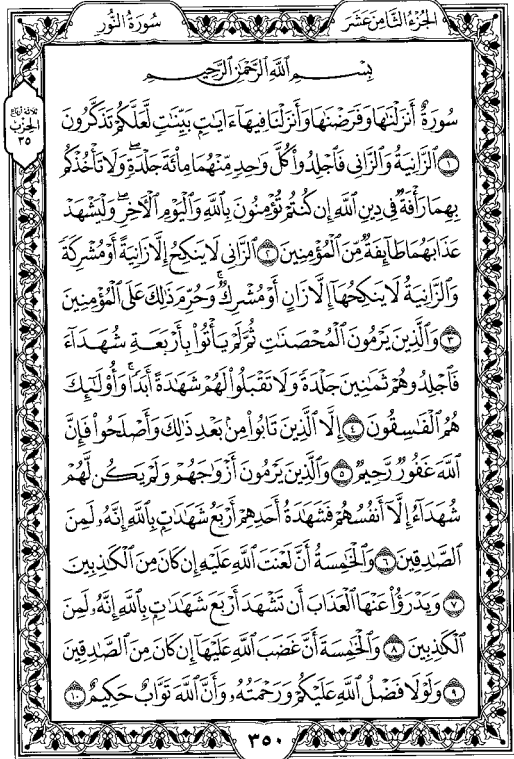 الجزء الثامن عشر
سورة النور
ثلاثة أرباع
الحزب
٣٥
بِسْمِ ٱللَّهِ ٱلرَّحْمَٰنِ ٱلرَّحِيمِ
سُورَةٌ أَنزَلْنَٰهَا وَفَرَضْنَٰهَا وَأَنزَلْنَا فِيهَآ ءَايَٰتٍۭ بَيِّنَٰتٍ لَّعَلَّكُمْ تَذَكَّرُونَ
١ ٱلزَّانِيَةُ وَٱلزَّانِى فَٱجْلِدُوا۟ كُلَّ وَٰحِدٍ مِّنْهُمَا مِا۟ئَةَ جَلْدَةٍ ۖ وَلَا تَأْخُذْكُم
بِهِمَا رَأْفَةٌ فِى دِينِ ٱللَّهِ إِن كُنتُمْ تُؤْمِنُونَ بِٱللَّهِ وَٱلْيَوْمِ ٱلْءَاخِرِ ۖ وَلْيَشْهَدْ
عَذَابَهُمَا طَآئِفَةٌ مِّنَ ٱلْمُؤْمِنِينَ ٢ ٱلزَّانِى لَا يَنكِحُ إِلَّا زَانِيَةً أَوْ مُشْرِكَةً
وَٱلزَّانِيَةُ لَا يَنكِحُهَآ إِلَّا زَانٍ أَوْ مُشْرِكٌ ۚ وَحُرِّمَ ذَٰلِكَ عَلَى ٱلْمُؤْمِنِينَ
٣ وَٱلَّذِينَ يَرْمُونَ ٱلْمُحْصَنَٰتِ ثُمَّ لَمْ يَأْتُوا۟ بِأَرْبَعَةِ شُهَدَآءَ
فَٱجْلِدُوهُمْ ثَمَٰنِينَ جَلْدَةً وَلَا تَقْبَلُوا۟ لَهُمْ شَهَٰدَةً أَبَدًا ۚ وَأُو۟لَٰٓئِكَ
هُمُ ٱلْفَٰسِقُونَ ٤ إِلَّا ٱلَّذِينَ تَابُوا۟ مِنۢ بَعْدِ ذَٰلِكَ وَأَصْلَحُوا۟ فَإِنَّ
ٱللَّهَ غَفُورٌ رَّحِيمٌ ٥ وَٱلَّذِينَ يَرْمُونَ أَزْوَٰجَهُمْ وَلَمْ يَكُن لَّهُمْ
شُهَدَآءُ إِلَّآ أَنفُسُهُمْ فَشَهَٰدَةُ أَحَدِهِمْ أَرْبَعُ شَهَٰدَٰتٍۭ بِٱللَّهِ ۙ إِنَّهُۥ لَمِنَ
ٱلصَّٰدِقِينَ ٦ وَٱلْخَٰمِسَةُ أَنَّ لَعْنَتَ ٱللَّهِ عَلَيْهِ إِن كَانَ مِنَ ٱلْكَٰذِبِينَ
٧ وَيَدْرَؤُا۟ عَنْهَا ٱلْعَذَابَ أَن تَشْهَدَ أَرْبَعَ شَهَٰدَٰتٍۭ بِٱللَّهِ ۙ إِنَّهُۥ لَمِنَ
ٱلْكَٰذِبِينَ ٨ وَٱلْخَٰمِسَةَ أَنَّ غَضَبَ ٱللَّهِ عَلَيْهَآ إِن كَانَ مِنَ ٱلصَّٰدِقِينَ
٩ وَلَوْلَا فَضْلُ ٱللَّهِ عَلَيْكُمْ وَرَحْمَتُهُۥ وَأَنَّ ٱللَّهَ تَوَّابٌ حَكِيمٌ ١٠
٣٥٠